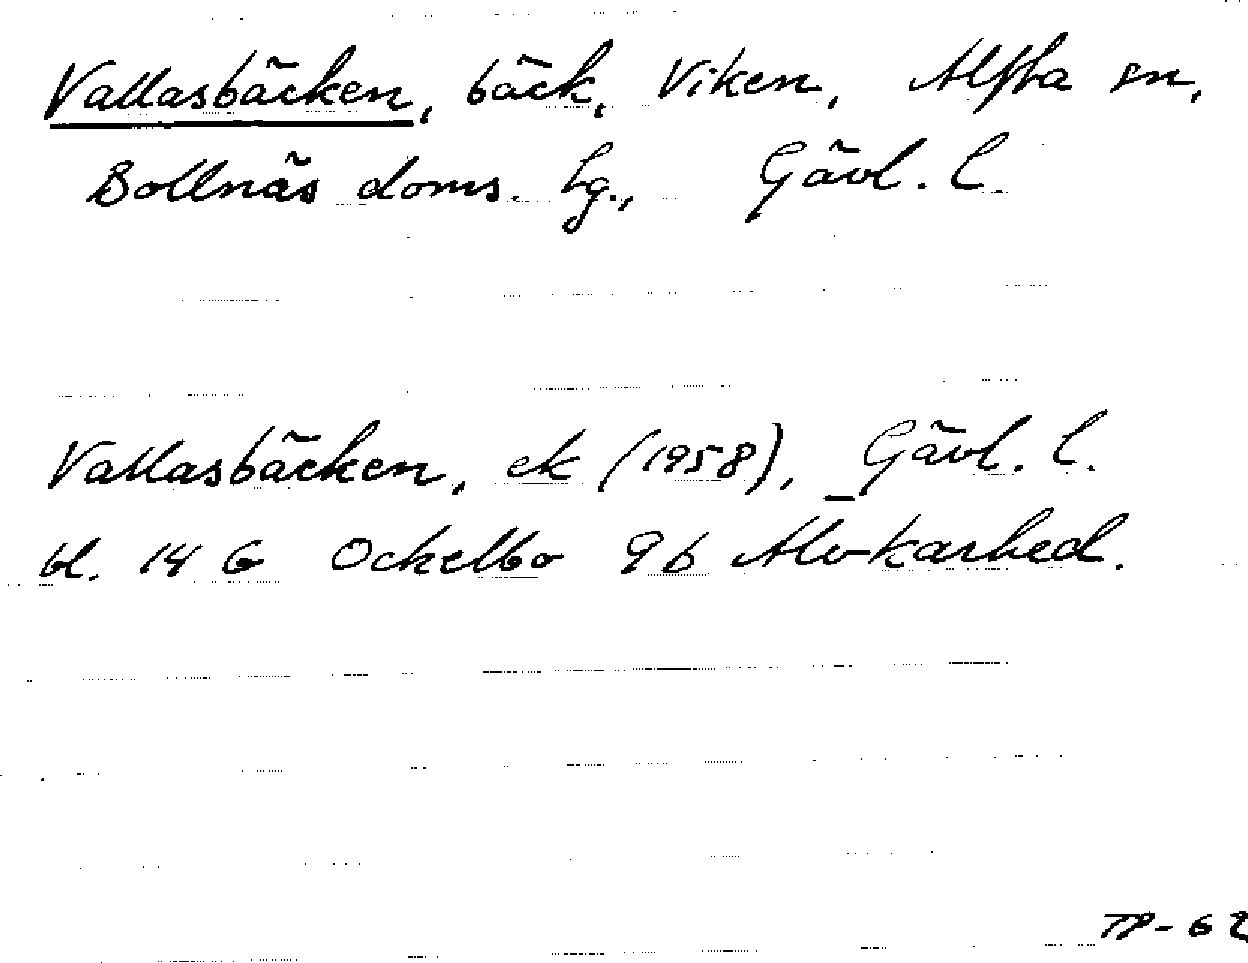 Vallasbäcken, bäck, Viken, Alfta sn,
Bollnäs doms. hg., Gävl. l.
Vallasbäcken, ek (1958), Gävl. l.
bl. 14 G Ockelbo 9 b Alvkarhed.
TP-62